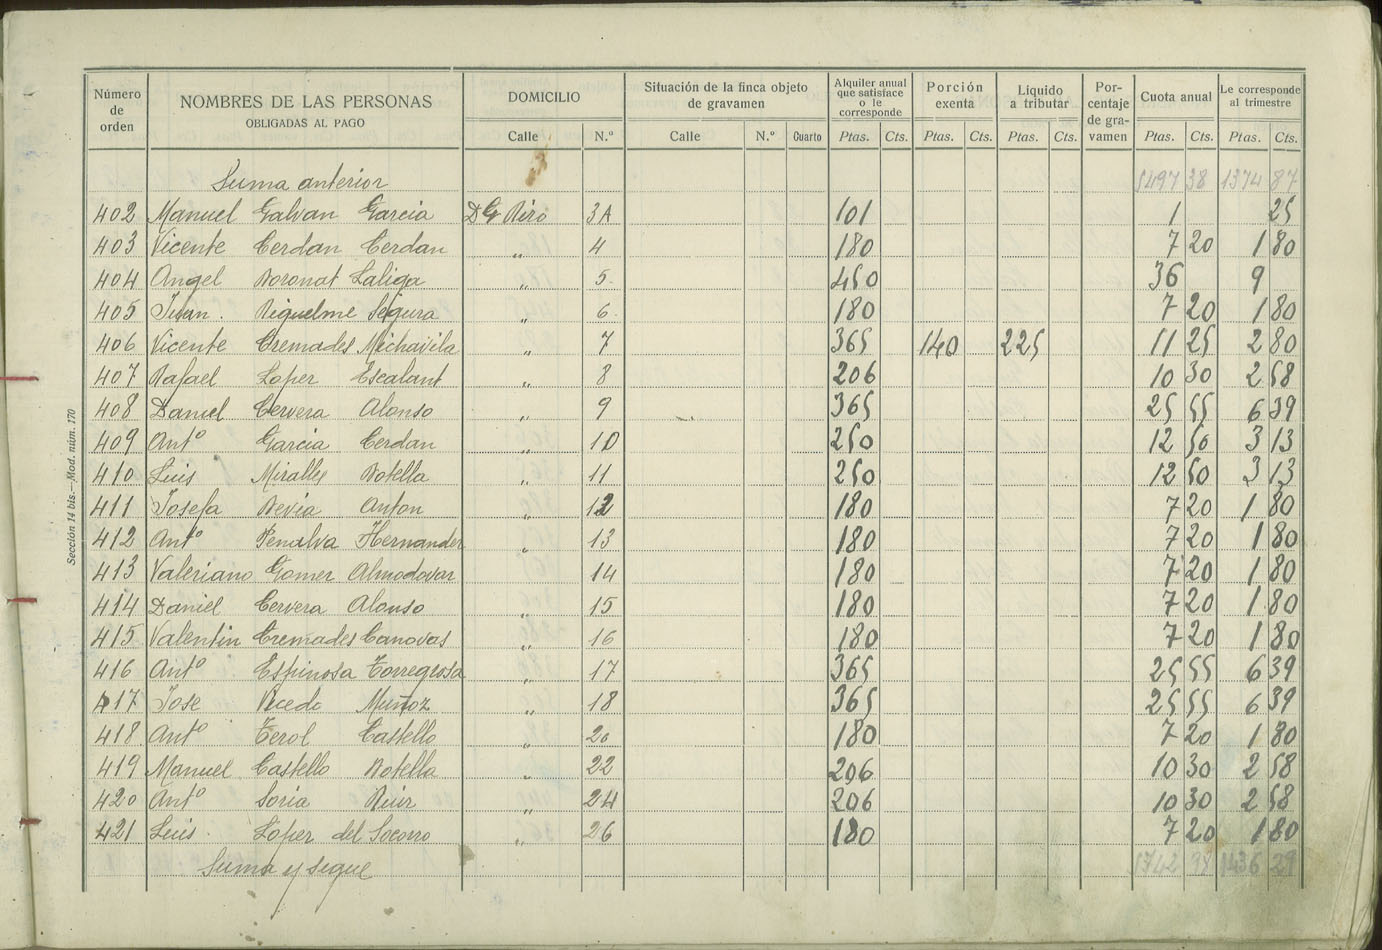 Número de orden | NOMBRES DE LAS PERSONAS OBLIGADAS AL PAGO | DOMICILIO | Situación de la finca objeto de gravamen | Alquiler anual que satisface o le corresponde | Porción exenta | Líquido a tributar | Porcentaje de gravamen | Cuota anual | Le corresponde al trimestre
Calle | N.º | Calle | N.º | Cuarto | Ptas. | Cts. | Ptas. | Cts. | Ptas. | Cts. | Ptas. | Cts. | Ptas. | Cts.
Suma anterior 5497 38 1374 87
402 Manuel Galvan Garcia D G Riro 3A 101 1 25
403 Vicente Cerdan Cerdan " 4 180 7 20 1 80
404 Angel Boronat Laliga " 5 450 36 9
405 Juan Riquelme Segura " 6 180 7 20 1 80
406 Vicente Cremades Michavila " 7 365 140 225 11 25 2 80
407 Rafael Loper Escalant " 8 206 10 30 2 58
408 Daniel Cervera Alonso " 9 365 25 55 6 39
409 Antº Garcia Cerdan " 10 250 12 50 3 13
410 Luis Miralles Botella " 11 250 12 50 3 13
411 Josefa Bevia Anton " 12 180 7 20 1 80
412 Antº Penalva Hernander " 13 180 7 20 1 80
413 Valeriano Gomer Almodovar " 14 180 7 20 1 80
414 Daniel Cervera Alonso " 15 180 7 20 1 80
415 Valentin Cremades Canovas " 16 180 7 20 1 80
416 Antº Espinosa Torregrosa " 17 365 25 55 6 39
417 Jose Vicedo Muñoz " 18 365 25 55 6 39
418 Antº Terol Castello " 20 180 7 20 1 80
419 Manuel Castello Botella " 22 206 10 30 2 58
420 Antº Soria Ruir " 24 206 10 30 2 58
421 Luis Loper del Socorro " 26 180 7 20 1 80
Suma y sigue 1436 29
Sección 14 bis.—Mod. núm. 170